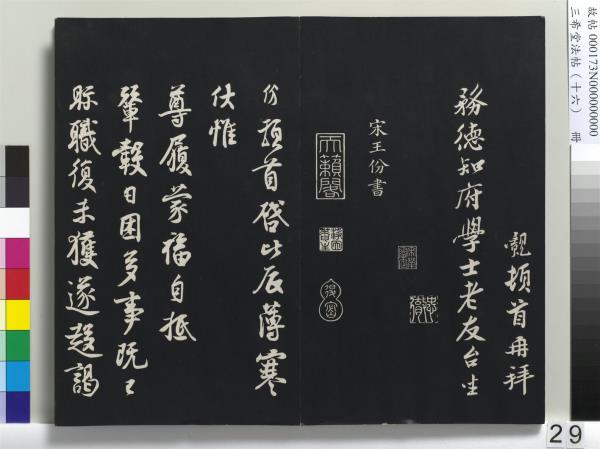 故帖 000173N000000000
三希堂法帖（十六） 冊
覿頓首再拜
務德知府學士老友台坐
宋王份書
天籟閣
份頓首啓比辰薄寒
伏惟
尊履蒙福自抵
輦轂日困多事既已
眎職復未獲遂趍謁
29